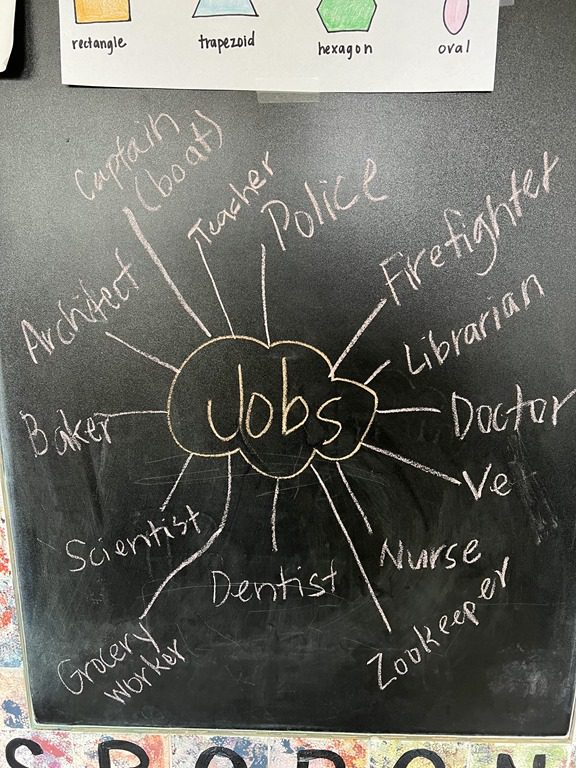 rectangle
trapezoid
hexagon
oval
Captain
(boat)
Teacher
Police
Firefighter
Architect
Librarian
Jobs
Baker
Doctor
Vet
Scientist
Nurse
Dentist
Zookeeper
Grocery
Worker